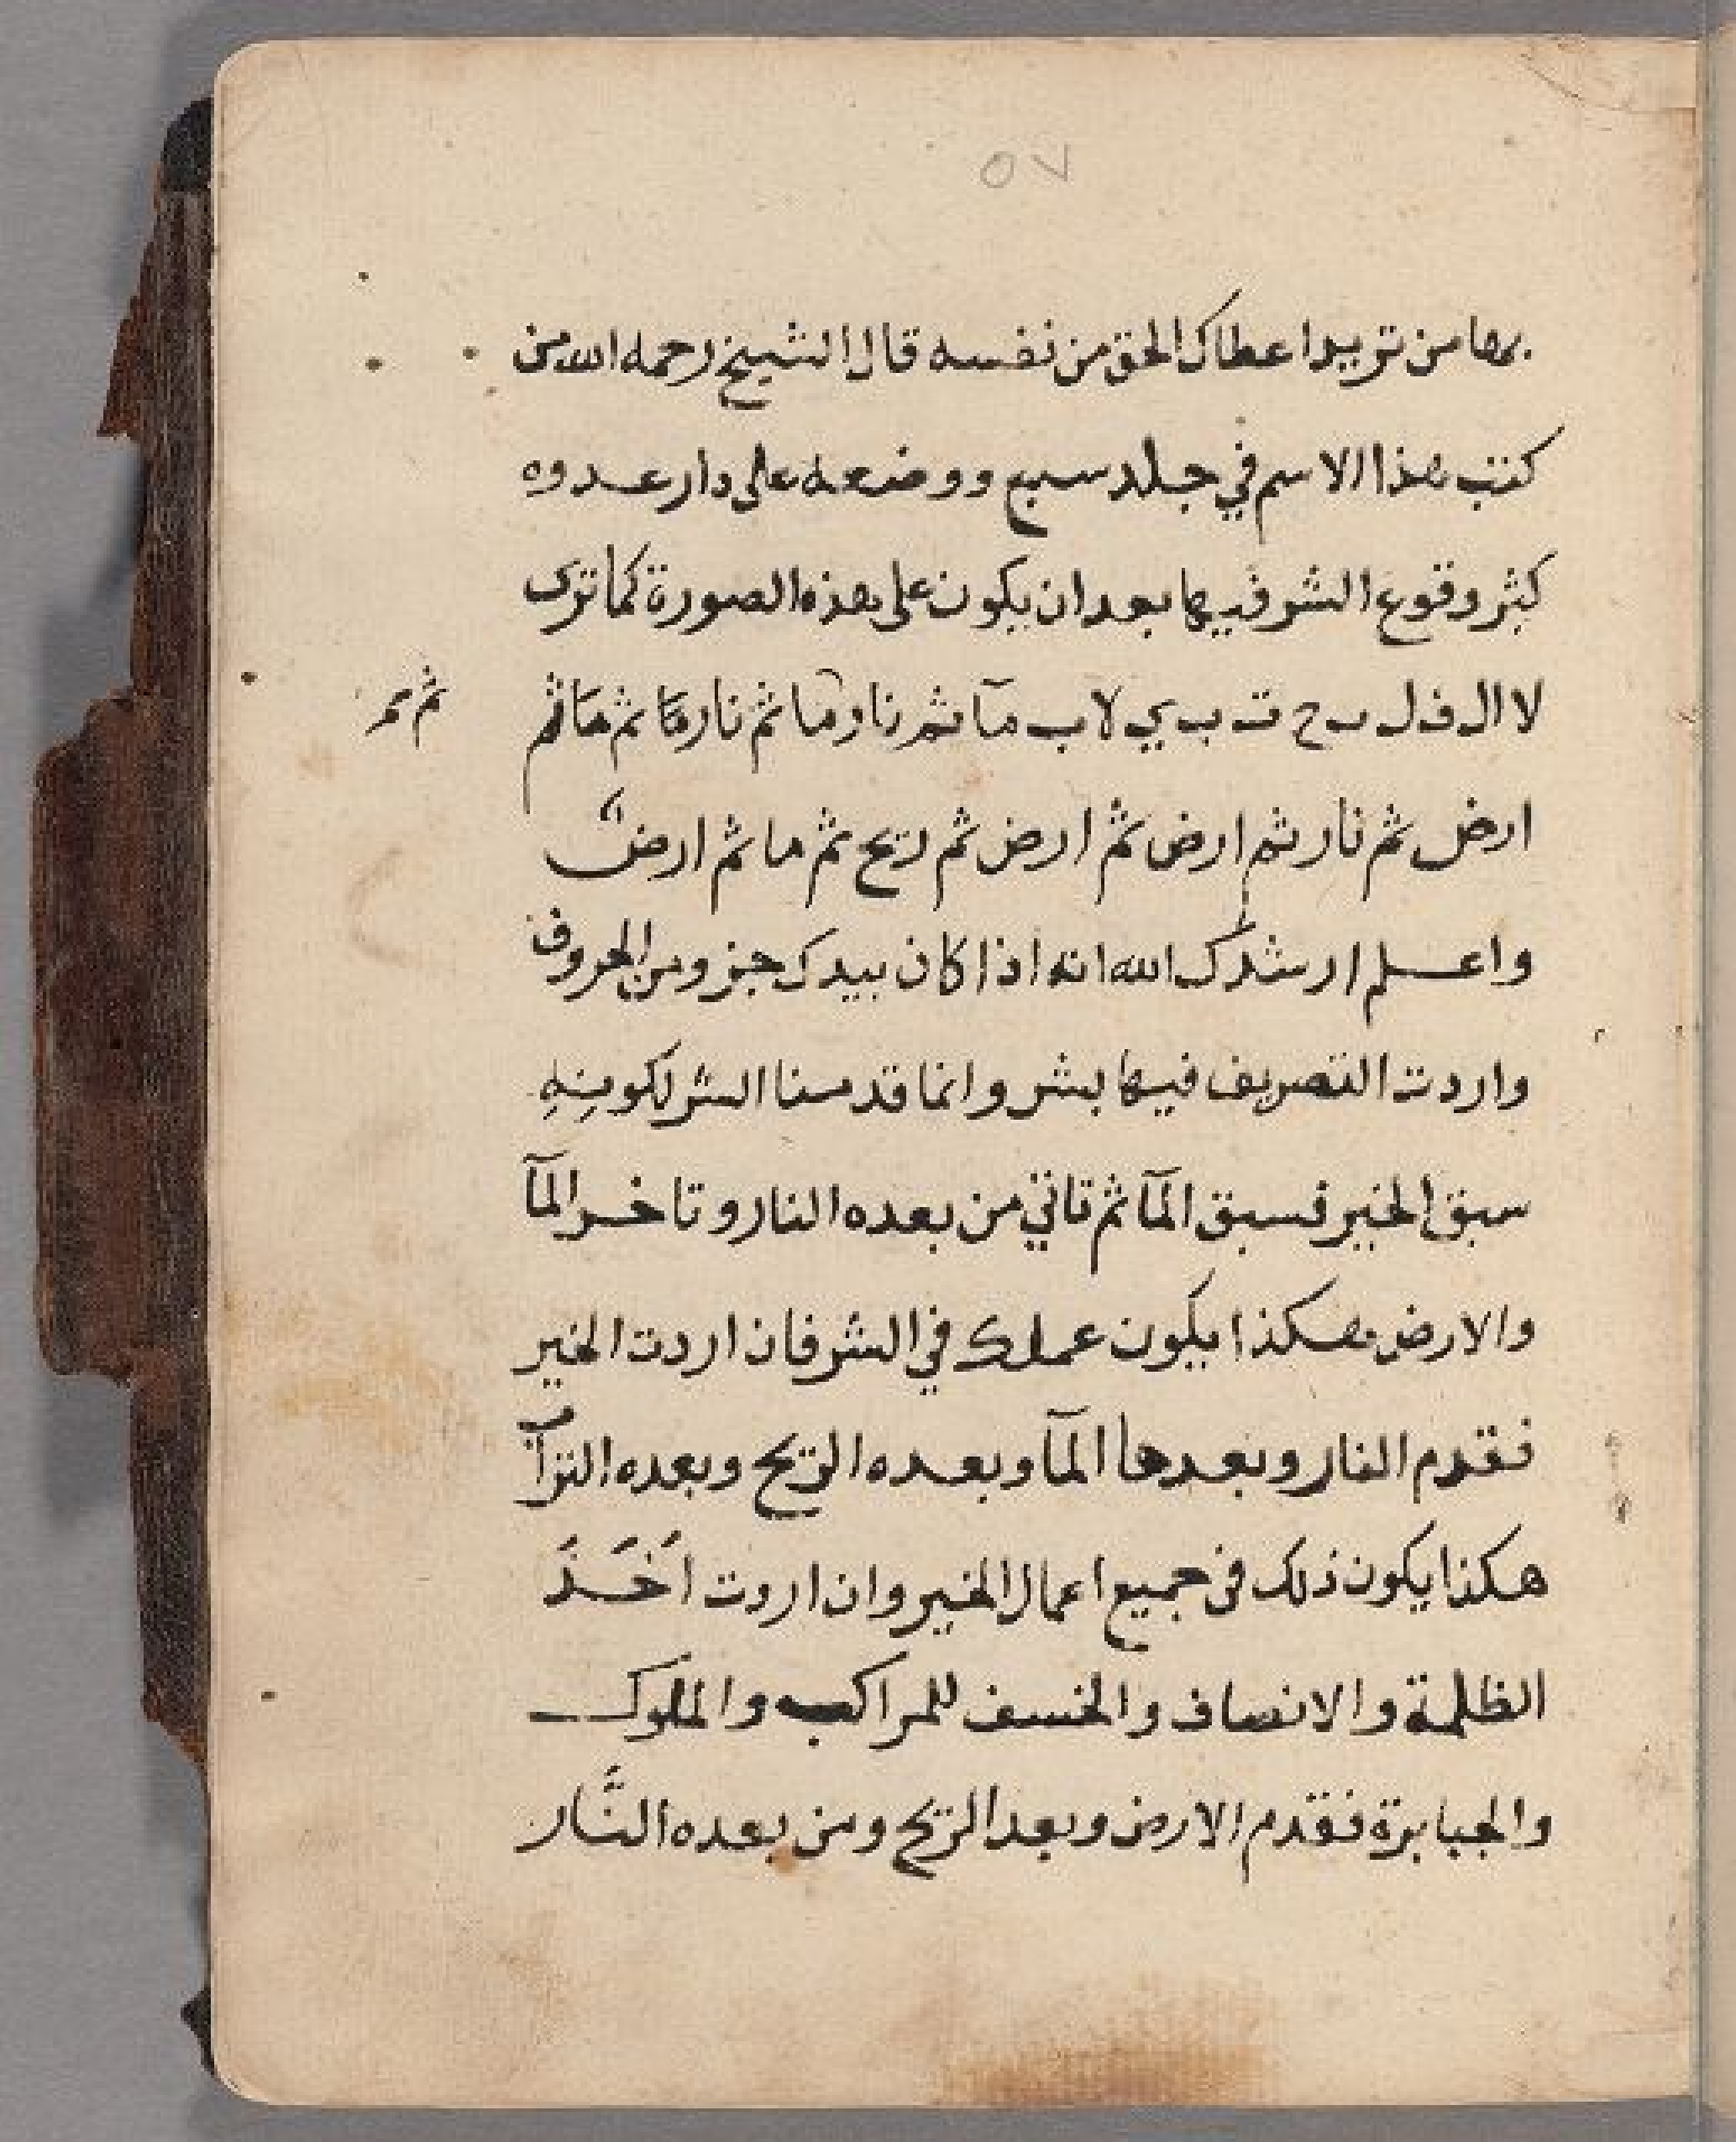 ٥٧
بها من تريد اعطاك الحق من نفسه قال الشيخ رحمه الله من
كتب هذا الاسم في جلد سبع ووضعه على دار عدوه
كثر وقوع الشر فيها بعد ان يكون على هذه الصورة كما ترى
لا ال ف ل ح ت ب ي لا ب مآ ثم نار ما ثم نار ما ثم ما ثم
ثم
ارض ثم نار ثم ارض ثم ارض ثم ريح ثم ما ثم ارض
واعلم ارشدك الله انه اذا كان بيدك جزو من الحروف
واردت التصريف فيها بشر وانما قدمنا الشر لكونه
سبق الخير فسبق المآ ثم تاتي من بعده النار وتاخر المآ
والارض هكذا يكون عملك في الشر فان اردت الخير
فقدم النار وبعدها المآ وبعده الريح وبعده التراب
هكذا يكون ذلك في جميع اعمال الخير وان اردت اَخَذَ
الظلمة والانصاف والخسف للمراكب والملوك
والجبابرة فقدم الارض وبعد الريح ومن بعده النَّار